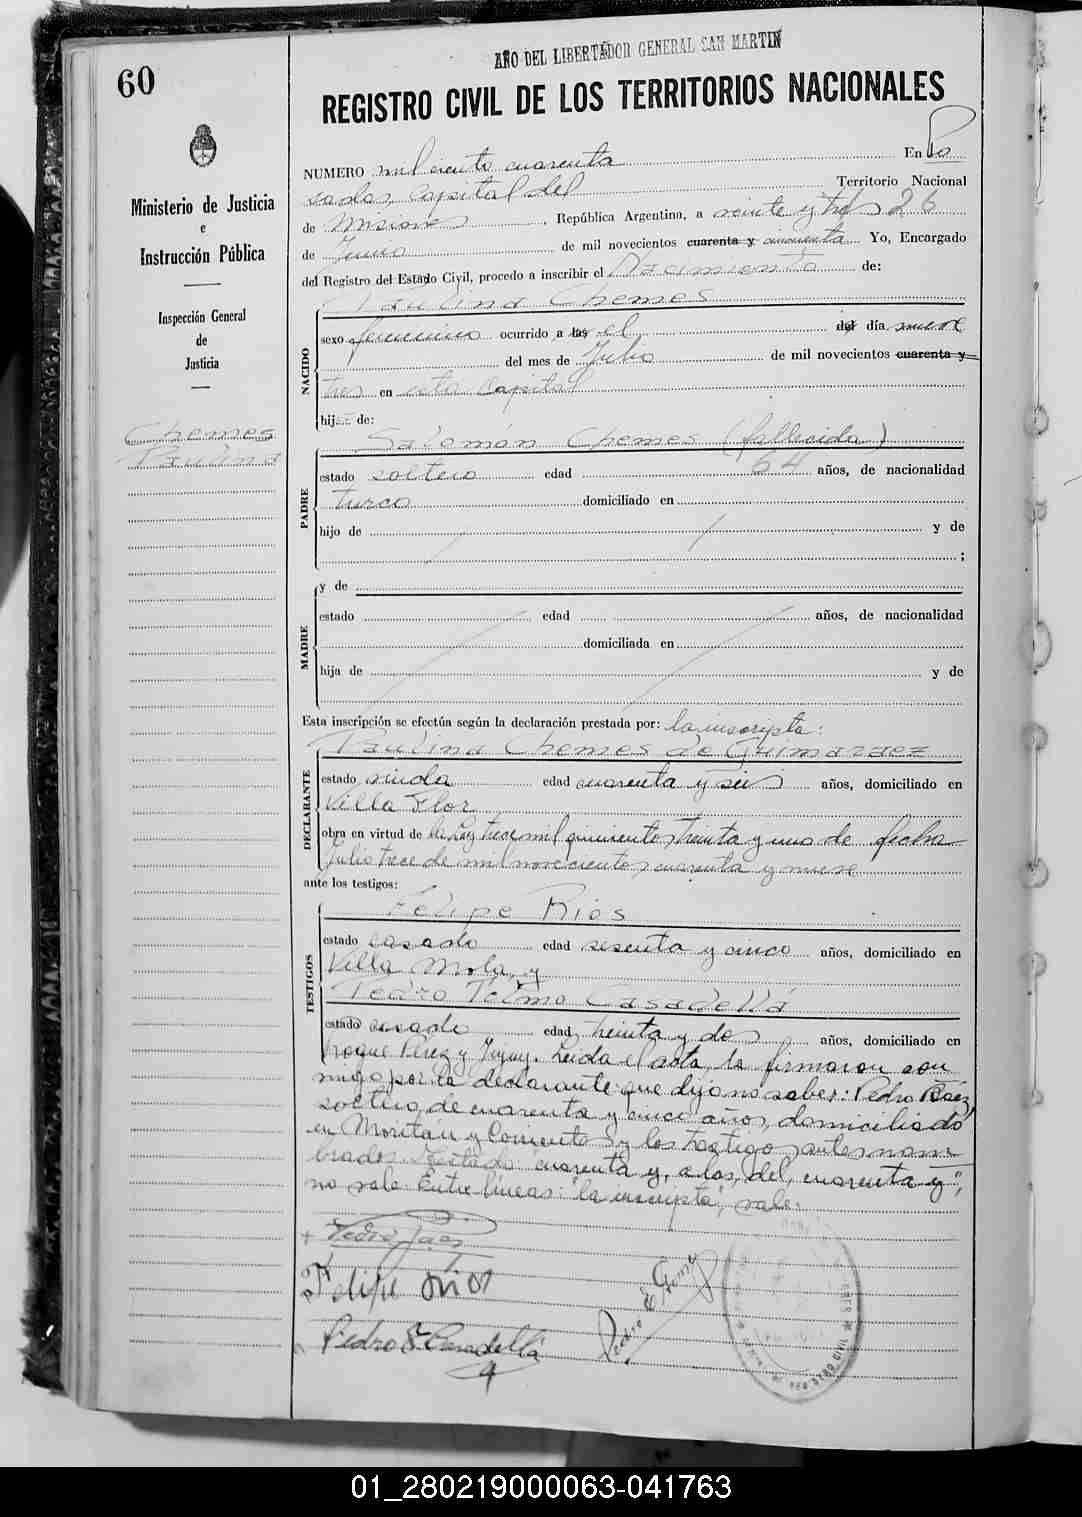 60
AÑO DEL LIBERTADOR GENERAL SAN MARTIN
REGISTRO CIVIL DE LOS TERRITORIOS NACIONALES
Ministerio de Justicia
e
Instrucción Pública
Inspección General
de
Justicia
Chemes
Paulina
NUMERO mil ciento cuarenta En Po
sadas, Capital del Territorio Nacional
de Misiones, República Argentina, a veinte y tres 26
de Junio de mil novecientos cuarenta y cincuenta Yo, Encargado
del Registro del Estado Civil, procedo a inscribir el Nacimiento de:
NACIDO
Paulina Chemes
sexo femenino ocurrido a las el del día nueve
del mes de Julio de mil novecientos cuarenta y
tres en esta Capital
hija de:
PADRE
Salomón Chemes (fallecido)
estado soltero edad 64 años, de nacionalidad
turco domiciliado en
hijo de y de
;
MADRE
y de
estado edad años, de nacionalidad
domiciliada en
hija de y de
Esta inscripción se efectúa según la declaración prestada por: la inscripta:
DECLARANTE
Paulina Chemes de Guimaraez
estado viuda edad cuarenta y seis años, domiciliado en
Villa Flor
obra en virtud de la Ley trece mil quinientos treinta y uno de fecha
Julio trece de mil novecientos cuarenta y nueve
ante los testigos:
TESTIGOS
Felipe Rios
estado casado edad sesenta y cinco años, domiciliado en
Villa Mola, y
Pedro Telmo Casadellá
estado casado edad treinta y dos años, domiciliado en
Roque Perez y Jujuy. Leida el acta, la firmaron con
migo por la declarante que dijo no saber: Pedro Báez,
soltero, de cuarenta y cinco años, domiciliado
en Moritán y Corrientes y los testigos antes nom
brados. Testado: "cuarenta y, a las, del, cuarenta y",
no vale. Entre líneas: "la inscripta", vale.
Pedro Baez
Felipe Rios
Pedro E Gomez
Pedro T. Casadellá
REGISTRO CIVIL
01_280219000063-041763